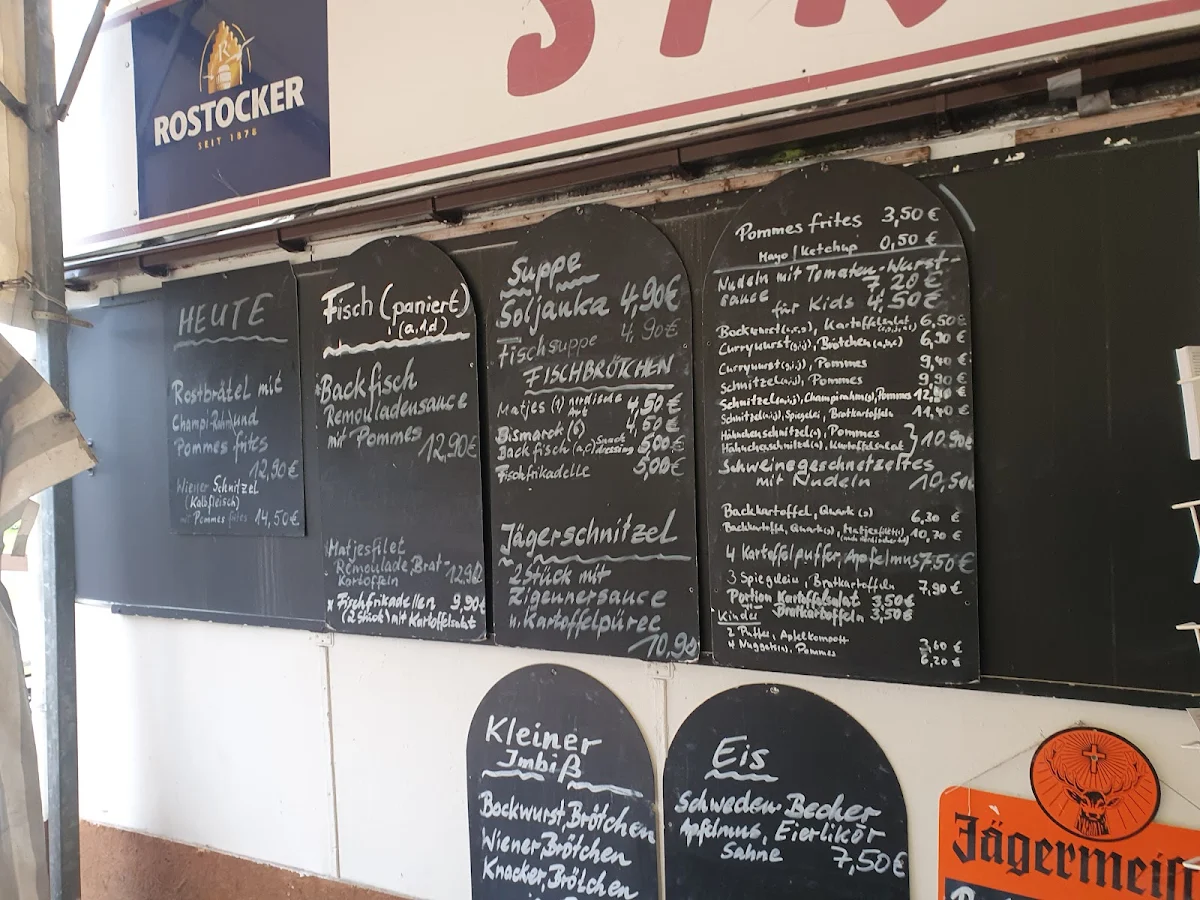 ROSTOCKER
SEIT 1878
HEUTE
Rostbrätel mit
Champi-Rahm und
Pommes frites
12,90€
Wiener Schnitzel
(Kalbfleisch)
mit Pommes frites 14,50€
Fisch (paniert)
(a,1,d)
Backfisch
Remouladensauce
mit Pommes
12,90€
Matjesfilet
Remoulade, Brat-
Kartoffeln 12,90
x Fischfrikadellen 9,90€
(2 Stück) mit Kartoffelsalat
Suppe
Soljanka 4,90€
Fischsuppe 4,90€
FISCHBRÖTCHEN
Matjes (1) nordische Art 4,50€
Bismarck (6) 4,50€
Backfisch (a,c) dressing 5,00€
Fischfrikadelle 5,00€
Jägerschnitzel
2 Stück mit
Zigeunersauce
u. Kartoffelpüree
10,90
Pommes frites 3,50€
Mayo/Ketchup 0,50€
Nudeln mit Tomaten-Wurst-
sauce 7,20€
für Kids 4,50€
Bockwurst, Kartoffelsalat 6,50€
Currywurst, Brötchen 6,90€
Currywurst, Pommes 9,40€
Schnitzel, Pommes 9,90€
Schnitzel, Champirahm, Pommes 12,90€
Schnitzel, Spiegelei, Bratkartoffeln 11,40€
Hähnchenschnitzel, Pommes
Hähnchenschnitzel, Kartoffelsalat } 10,90€
Schweinegeschnetzeltes
mit Nudeln 10,50€
Backkartoffel, Quark 6,30 €
Backkartoffel, Quark, Matjesfilet 10,70 €
4 Kartoffelpuffer, Apfelmus 7,50€
3 Spiegelein, Bratkartoffeln 7,90€
Portion Kartoffelsalat 3,50€
Bratkartoffeln 3,50€
Kinder
2 Puffer, Apfelkompott 3,60 €
4 Nuggets, Pommes 6,20 €
Kleiner
Imbiß
Bockwurst, Brötchen
Wiener, Brötchen
Knacker, Brötchen
Eis
Schweden-Becher
Apfelmus, Eierlikör
Sahne 7,50€
Jägermeist